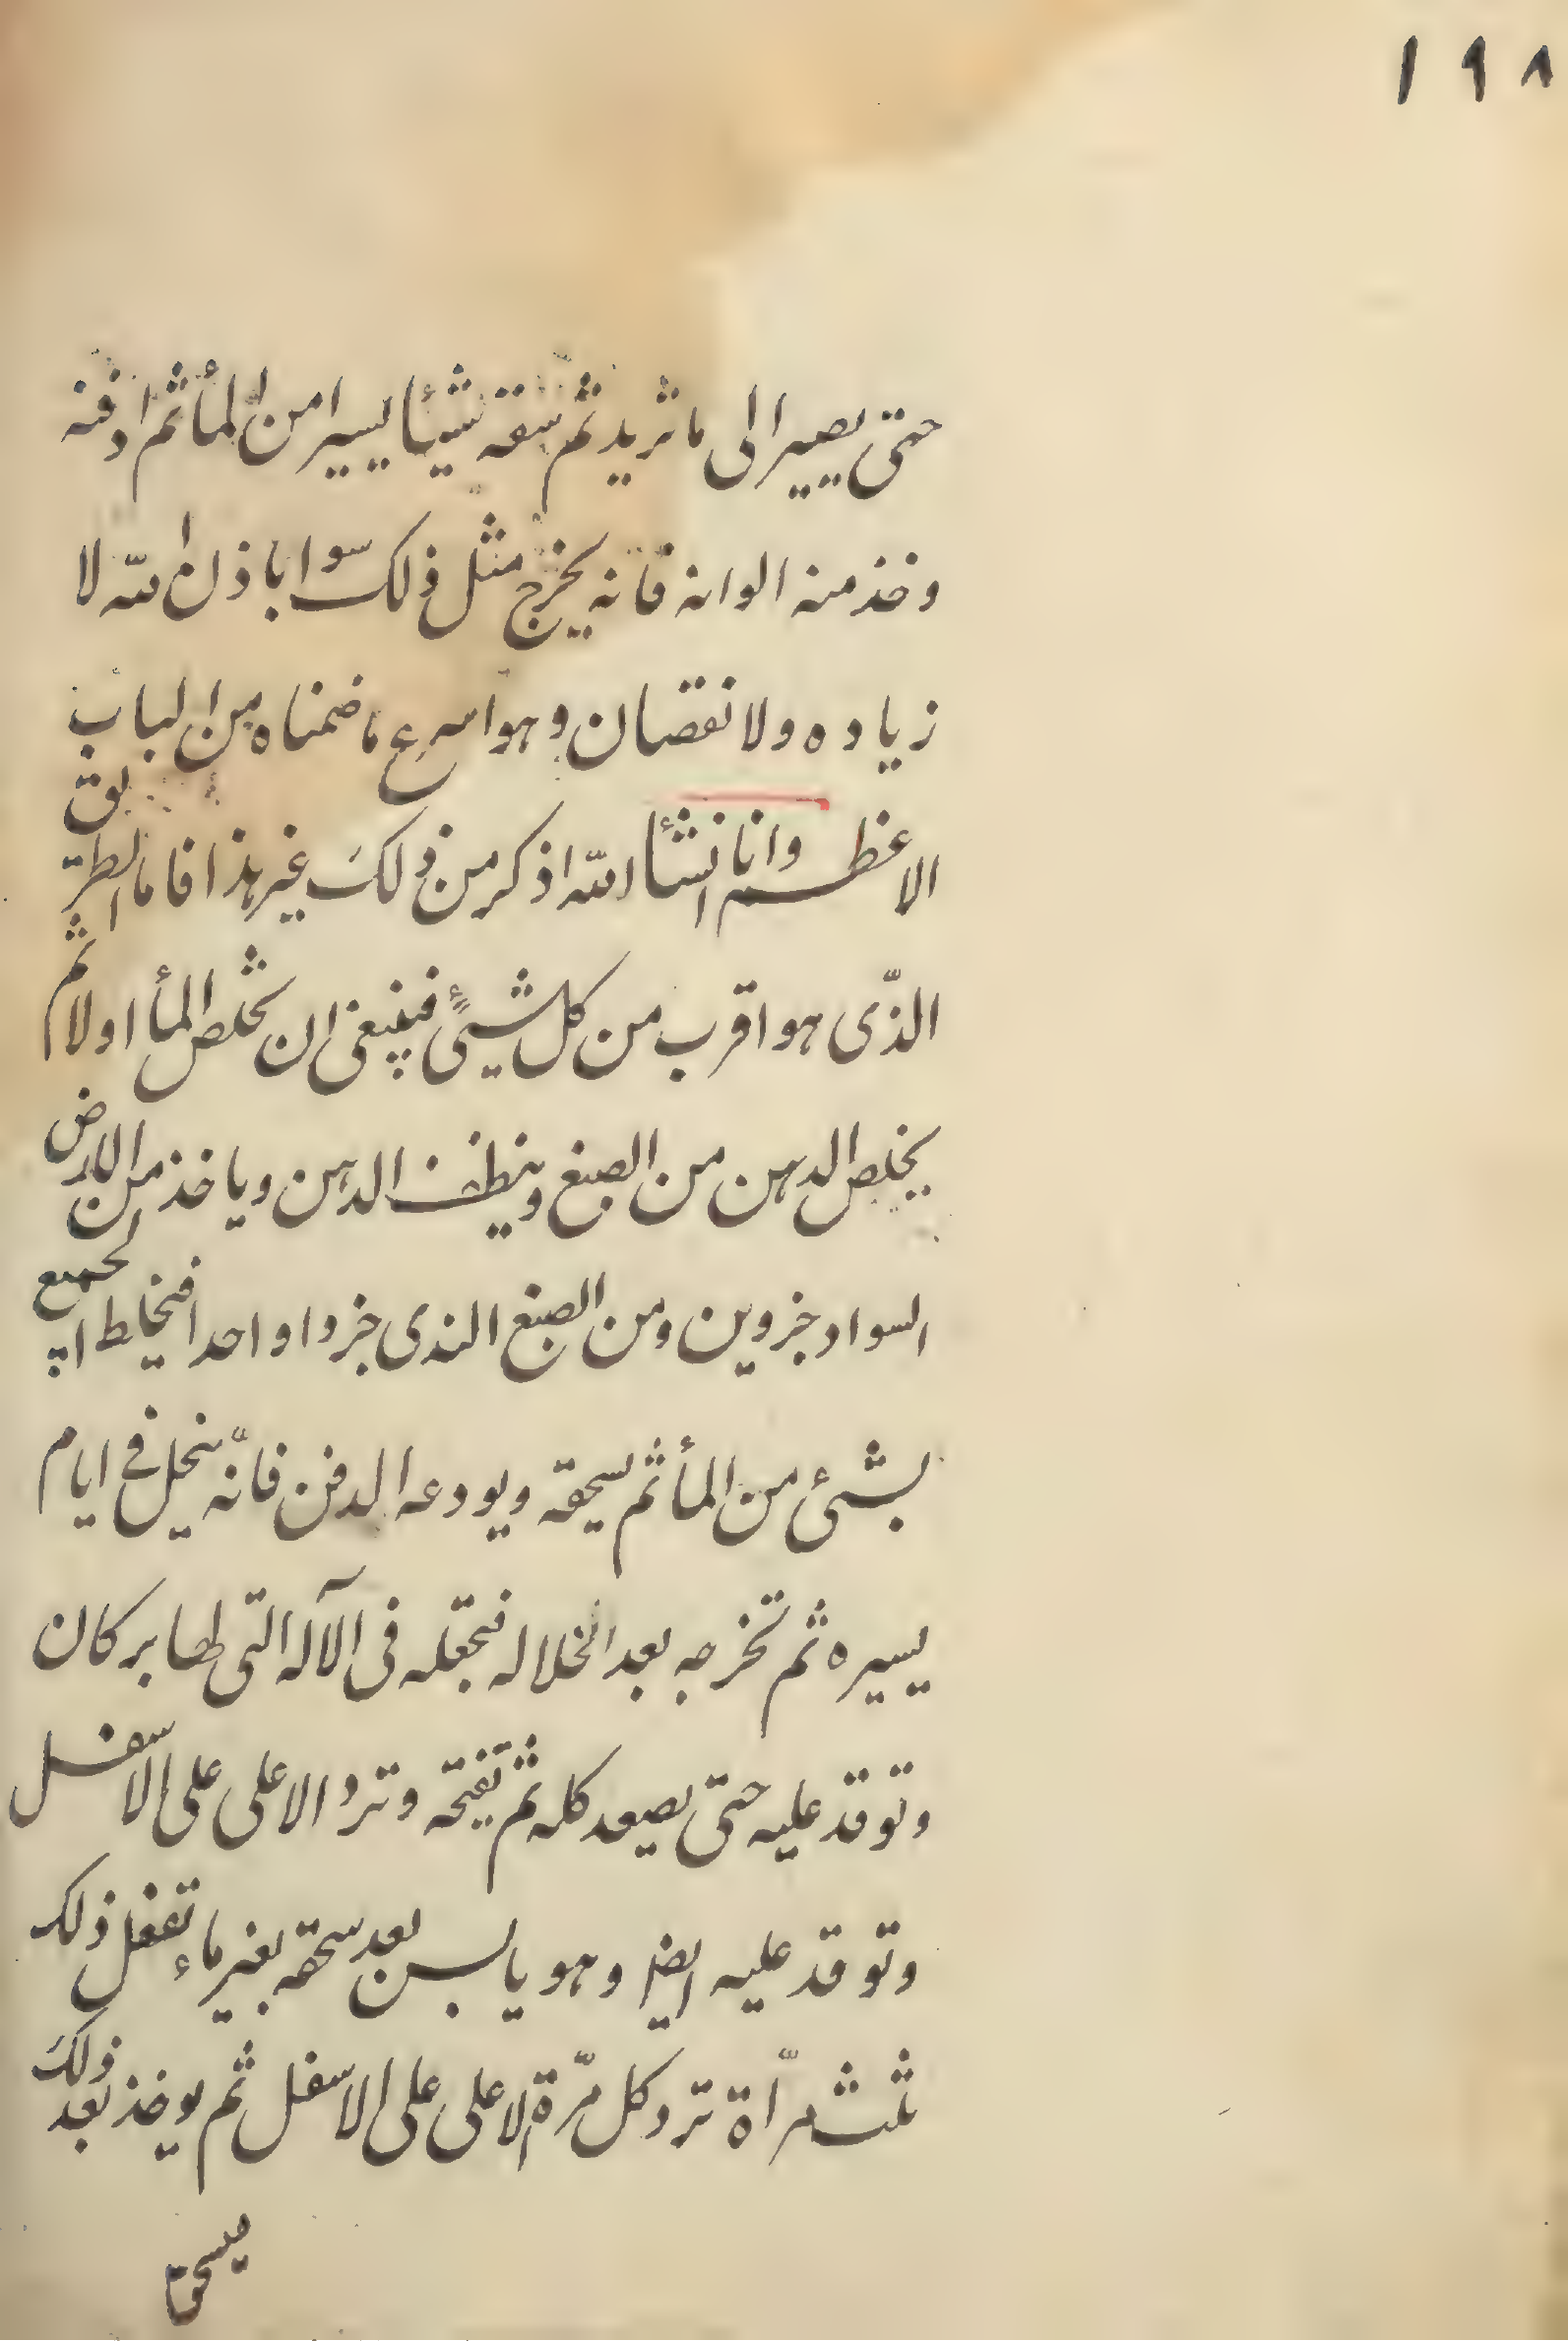 ١٩٨
حتى يصير الى ما تريد ثم سقه شيئا يسيرا من المأ ثم ادفنه
وخذ منه الوانه فانه يخرج مثل ذلك سوا باذن الله لا
زياده ولا نقصان وهو اسرع ما ضمناه من الباب
الاعظم وانا انشأ الله اذكر من ذلك غير هذا فاما الطريق
الذّى هو اقرب من كل شيئ فينبغى ان تخلص المأ اولا ثم
يخلص الدهن من الصبغ وينظف الدهن وياخذ من الارض
السواد جزوين ومن الصبغ الندى جزوا واحدا فتخلط الجميع
بشئ من المأ ثم يسحقه ويودعه الدفن فانّه ينحل فى ايام
يسيره ثم تخرجه بعد انحلاله فتجعله فى الآله التى لها بركان
وتوقد عليه حتى يصعد كله ثم تفتحه وترد الاعلى على الاسفل
وتوقد عليه ايضا وهو يابس بعد سحقه بغير ماء تفعل ذلك
ثلث مرّاة ترد كل مرّة الاعلى على الاسفل ثم يوخذ بعد ذلك
فيسحق